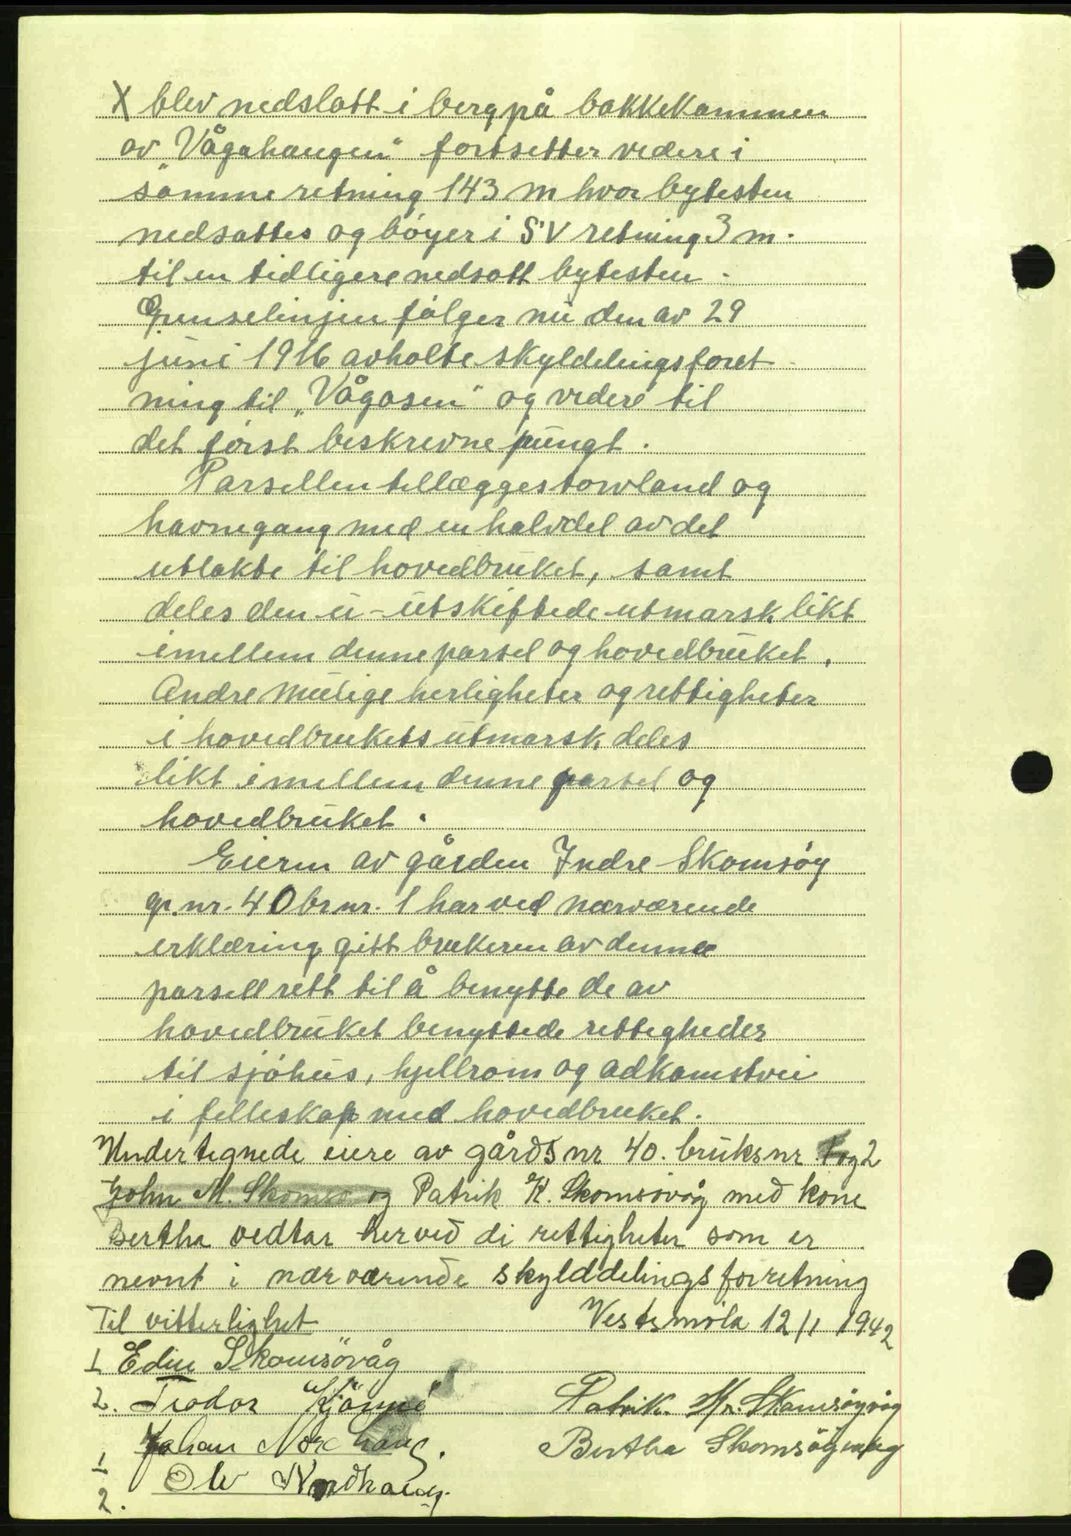 X blev nedslått i berg på bakkekammen
av "Vågahaugen" fortsetter videre i
samme retning 143 m hvor bytesten
nedsattes og bøyer i SV retning 3 m.
til en tidligere nedsatt bytesten.
Grenselinjen følger nu den av 29
juni 1916 avholte skylddelingsforet
ning til "Vågåsen" og videre til
det først beskrevne pungt.
Parsellen tillægges torvland og
havnegang med en halvdel av det
utlakte til hovedbruket, samt
deles den u-utskiftede utmarsk likt
imellem denne parsel og hovedbruket.
Andre mulige herligheter og rettigheter
i hovedbrukets utmarsk deles
likt imellem denne parsel og
hovedbruket.
Eieren av gården Indre Skomsøy
gr. nr. 40 br nr. 1 har ved nærværende
erklæring gitt brukeren av denne
parsell rett til å benytte de av
hovedbruket benyttede rettigheder
til sjøhus, hjellrom og adkomstvei
i felleskap med hovedbruket.
Undertegnede eiere av gårds nr 40. bruks nr. 1 og 2
John M. Skomsø og Patrik K. Skomsövåg med kone
Bertha vedtar herved di rettigheter som er
nevnt i nærværende skylddelingsforretning
Til vitterlighet Vestsmøla 12/1 1942
1 Edin Skomsövåg
2. Teodor Kjönnö Patrik Kr. Skomsøyvåg
1 Johan Nordhaug. Bertha Skomsøyvåg
2. Ole Nordhaug.